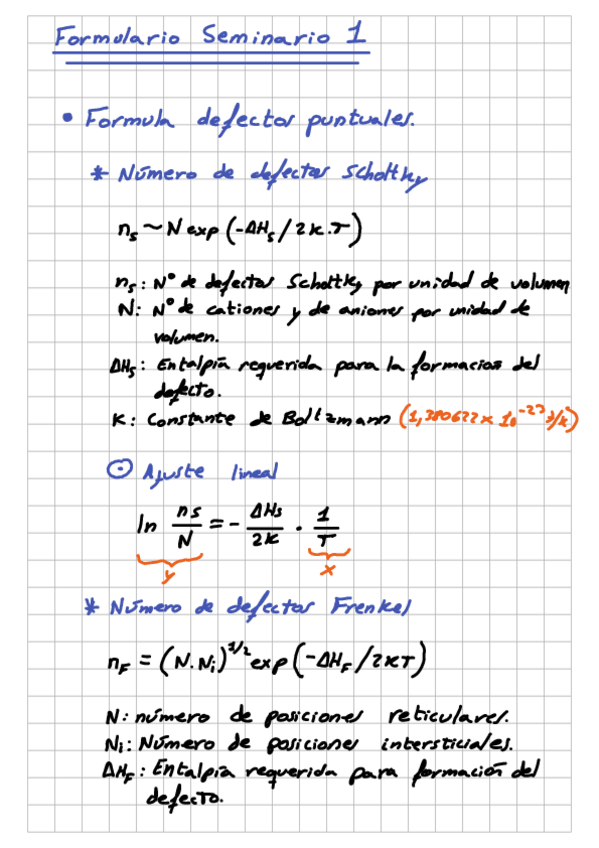 Formulario Seminario 1
• Formula defectos puntuales.
* Número de defectos Schottky
n_s ~ N exp (-ΔH_s / 2K.T)
n_s: Nº de defectos Schottky por unidad de volumen
N: Nº de cationes y de aniones por unidad de
volumen.
ΔH_s: Entalpía requerida para la formación del
defecto.
K: Constante de Boltzmann (1,380622 x 10^-23 J/K)
⊙ Ajuste lineal
ln n_s/N = - ΔH_s/2K . 1/T
y x
* Número de defectos Frenkel
n_F = (N.N_i)^1/2 exp (-ΔH_F / 2KT)
N: número de posiciones reticulares.
N_i: Número de posiciones intersticiales.
ΔH_F: Entalpía requerida para formación del
defecto.